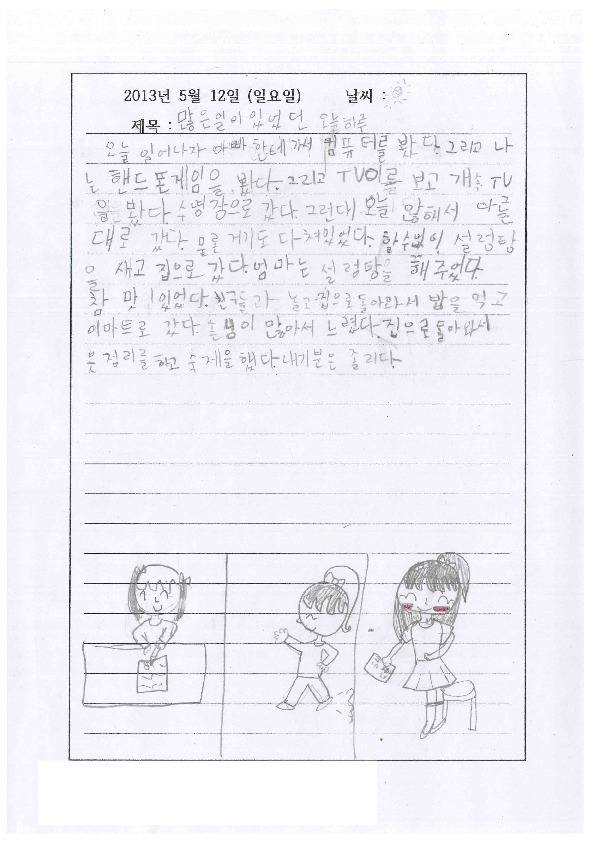 2013년 5월 12일 (일요일) 날씨 :
제목 : 많은일이 있었던 오늘하루
오늘 일어나자 아빠 한테 가서 컴퓨터를 봤다. 그리고 나
는 핸드폰게임을 봤다. 그리고 TV를 보고 개속 TV
을 봤다. 수영장으로 갔다. 그런대 오늘 않해서 마을
대로 갔다. 물론 거기도 다쳐있었다. 할수없이 설렁탕
을 새고 집으로 갔다. 엄마는 설렁탕을 해주었다
참 맛있었다. 친구들과 놀고 집으로돌아와서 밥을 먹고
이마트로 갔다. 손님이 많아서 느렸다. 집으로돌아와서
옷정리를하고 숙제을했다. 내기분은 졸리다.